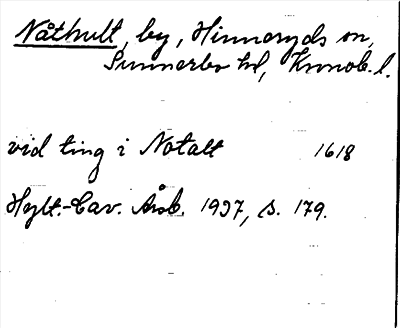 Nåthult, by, Hinneryds sn,
Sunnerbo hd, Kronob. l.
vid ting i Notalt 1618
Hylt.-Cav. Årsb. 1937, s. 179.